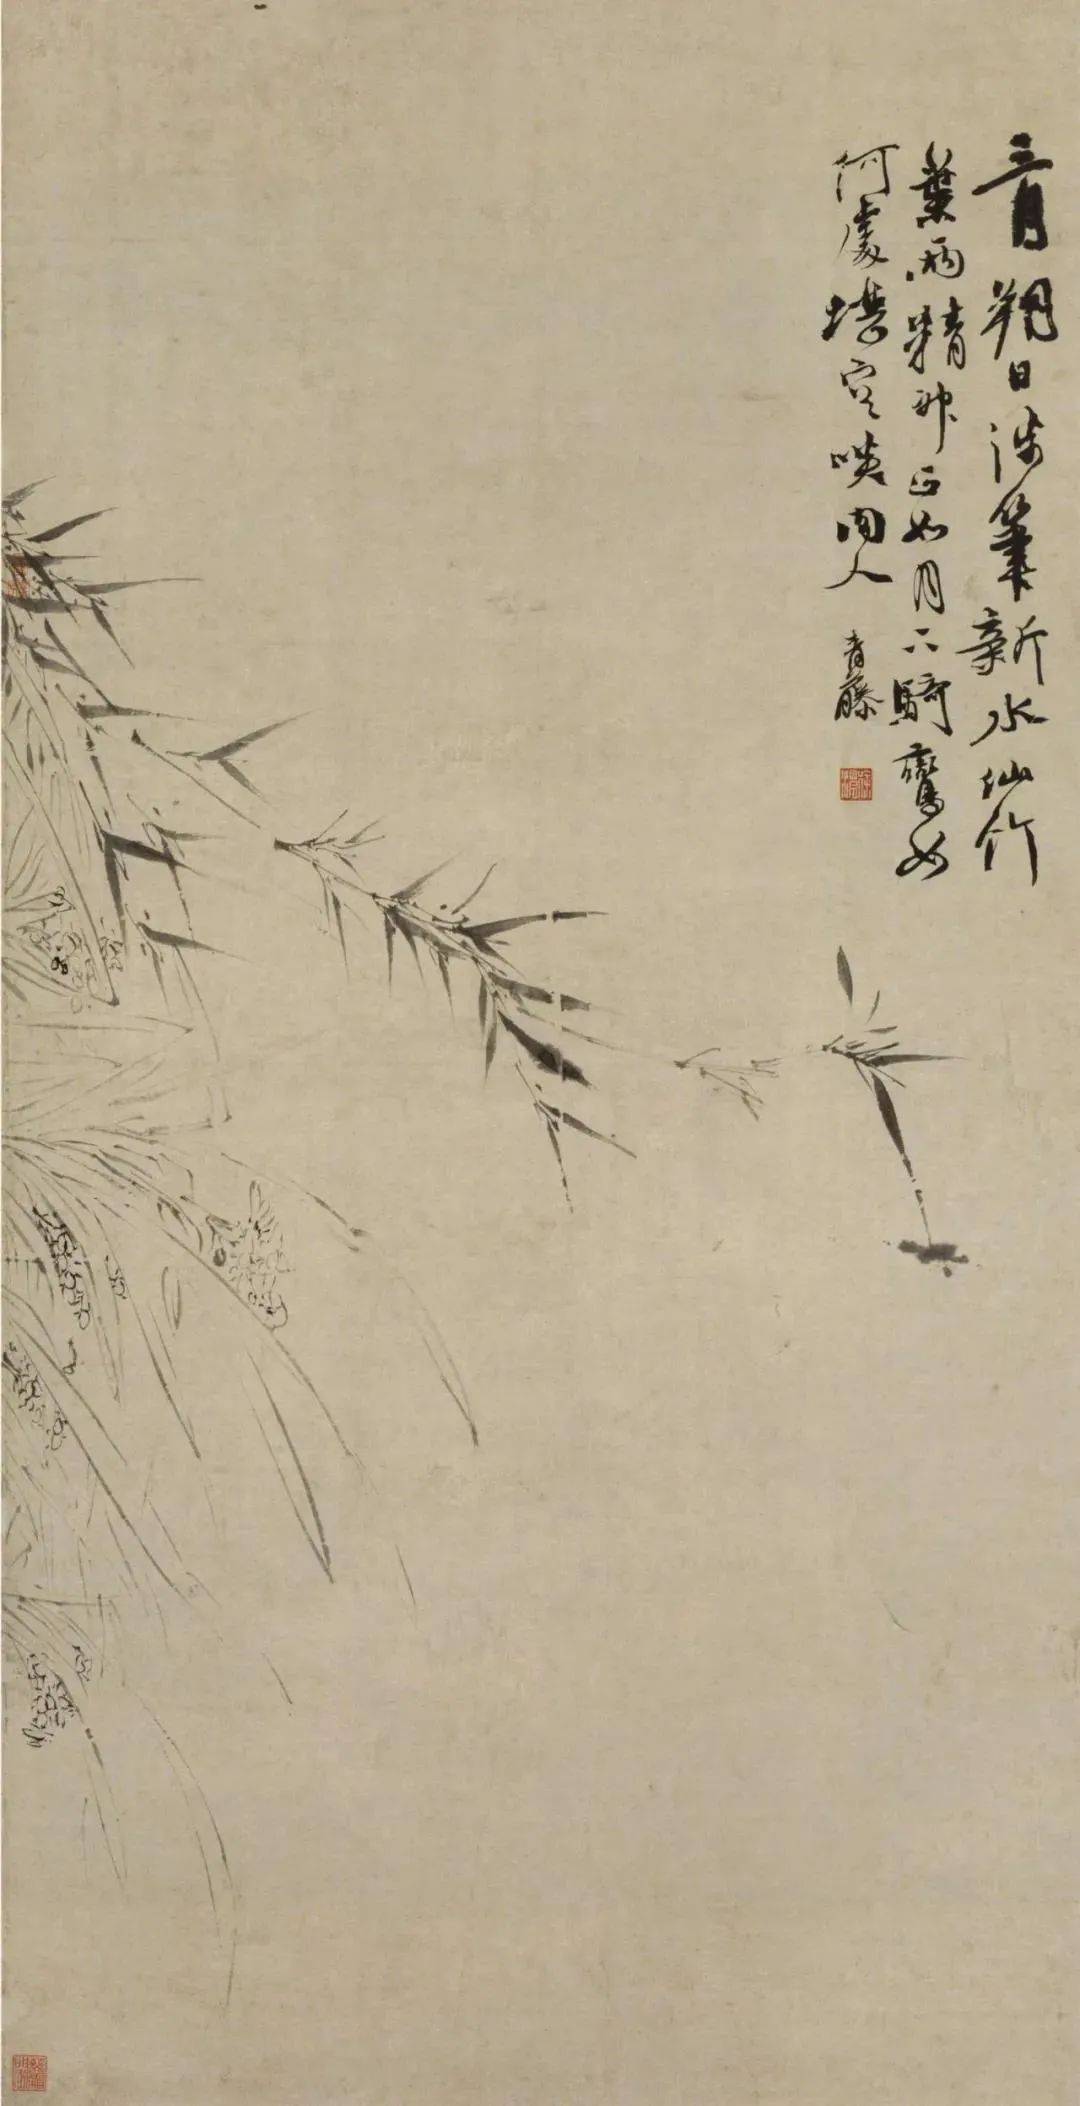 三月朔日涉筆新水仙竹
葉兩精神正如月下騎鸞女
何處堪容啖肉人
青藤